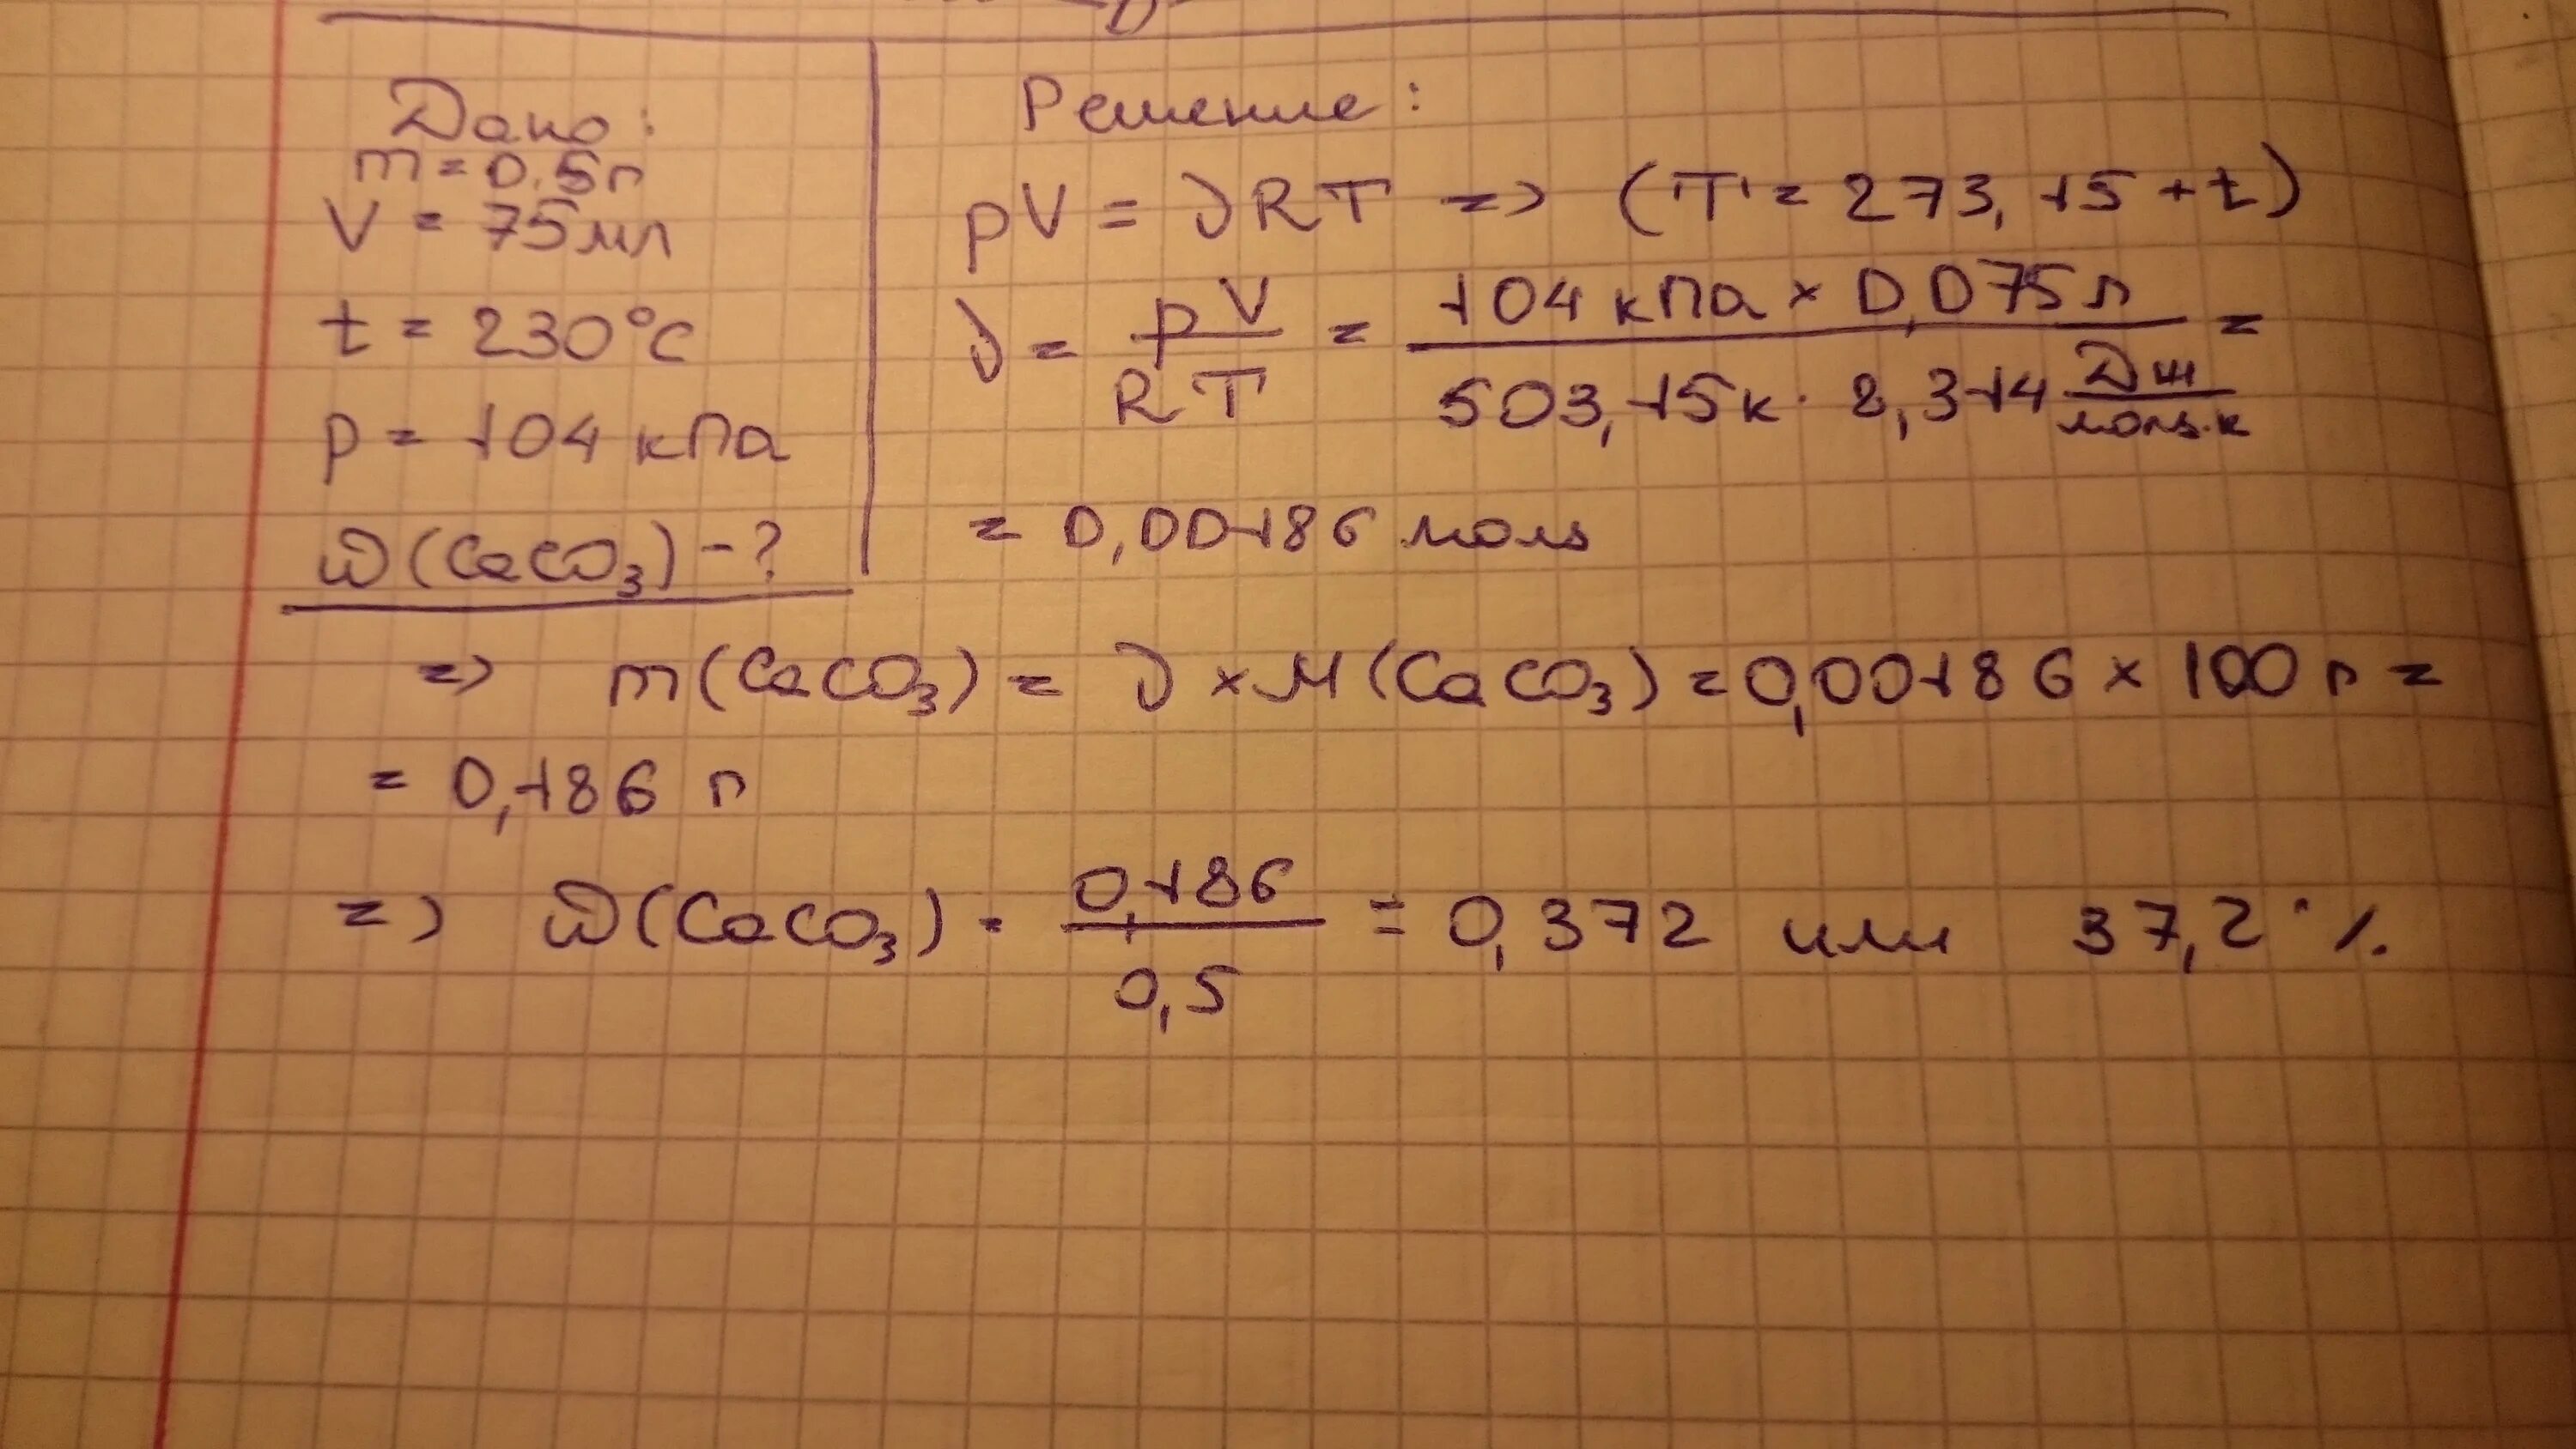 Дано:
m = 0,5 г
V = 75 мл
t = 230°C
p = 104 кПа
ω(CaCO₃) - ?
Решение:
pV = νRT => (T = 273,15 + t)
ν = pV / RT = 104 кПа × 0,075 л / 503,15 к · 8,314 Дж / моль·к =
= 0,00186 моль
=> m(CaCO₃) = ν × M(CaCO₃) = 0,00186 × 100 г =
= 0,186 г
=> ω(CaCO₃) = 0,186 / 0,5 = 0,372 или 37,2 %